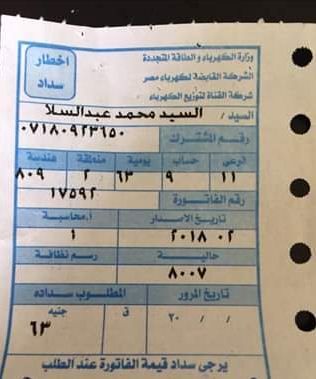 اخطار
سداد
وزارة الكهرباء و الطاقة المتجددة
الشركة القابضة لكهرباء مصر
شركة القناة لتوزيع الكهرباء
السيد / السيد محمد عبدالسلا
رقم المشترك ٠٧١٨٠٩٢٣٦٥٠
فرعي حساب يومية منطقة هندسة
١١ ٩ ٦٣ ٢ ٨٠٩
رقم الفاتورة ١٧٥٩٢
تاريخ الاصدار أ.محاسبة
٢٠١٨ ٠٢ ١
حالية رسم نظافة
٨٠٠٧
تاريخ المرور المطلوب سداده
/ / ٢٠ ق جنيه
٦٣
يرجى سداد قيمة الفاتورة عند الطلب